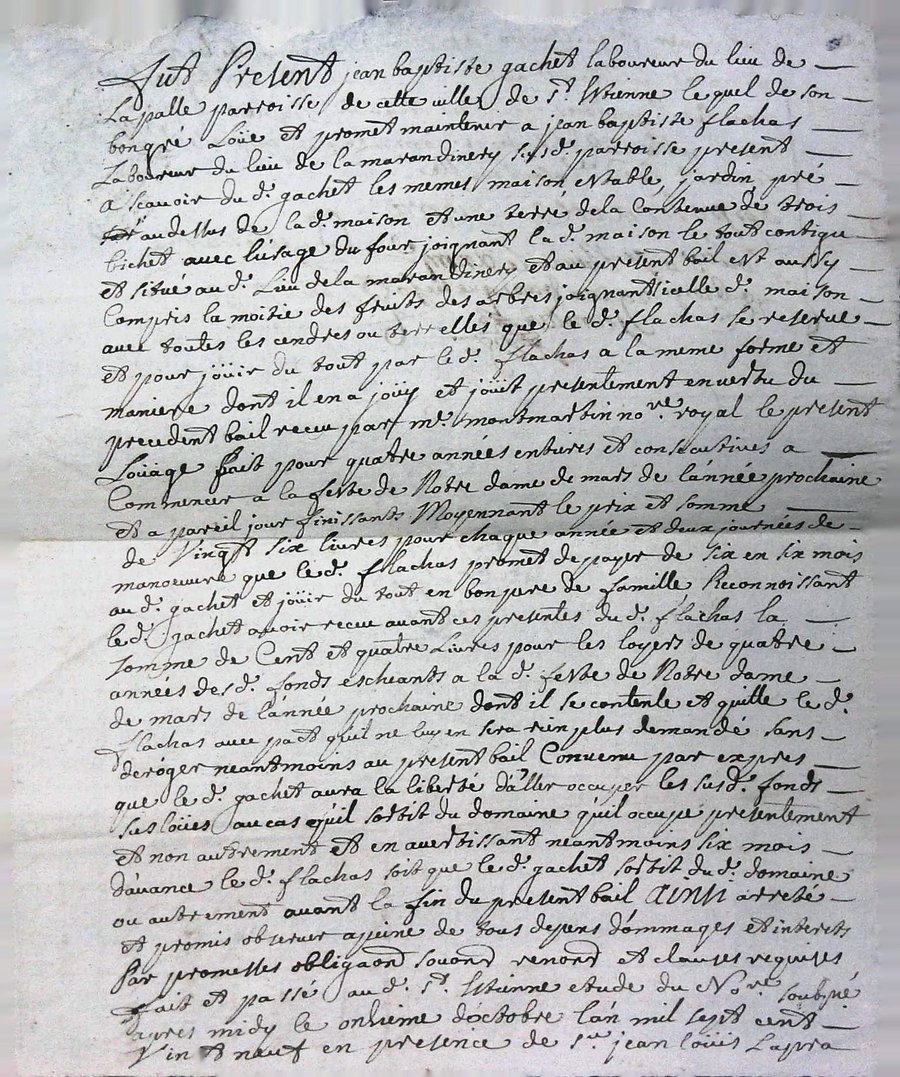 Fut Present jean baptiste gachet laboureur du lieu de
Lapalle parroisse de cette ville de st. Etienne le quel de son
bongré Loüe et promet maintenir a jean baptiste flachas
Laboureur du lieu de la marandinery susd. parroisse present
A scavoir du d. gachet les memes maison estable, jardin pré
au dessus de la d. maison et une terre dela Contenue de trois
bichet avec lusage du four joignant la d. maison le tout contigu
et situé au d. Lieu dela marandinery et au present bail est aussy
Compris la moitie des fruits des arbres joignants icelle d. maison
avec toutes les cendres ou terrelles que le d. flachas se reserve
et pour joüir du tout par le d. flachas a la meme forme et
maniere dont il en a joüy et joüit presentement en vertu du
precedent bail recu par me. montmartin nore. royal le present
Loüage fait pour quatre années entieres et consecutives a
Commencer a la feste de Notre dame de mars de lánnée prochaine
et a pareil jour finissants Moyennant le prix et somme
de Vingt six livres pour chaque année et deux journées de
manoeuvre que le d. flachas promet de payer de six en six mois
au d. gachet et joüir du tout en bon pere de famille, Reconnoissant
le d. gachet avoir receu avant ces presentes du d. flachas la
somme de Cent et quatre Livres pour les loyers de quatre
années desd. fonds escheants a la d. feste de Notre dame
de mars de lánnée prochaine dont il se contente et quitte le d.
flachas avec pact quil ne luy en sera rien plus demandé sans
deroger neantmoins au present bail Convenu par expres
que le d. gachet aura la liberté dáller occuper les susd. fonds
sus loüés au cas quíl sortit du domaine quíl occupe presentement
et non autrement et en avertissant neantmoins six mois
dávance le d. flachas soit que le d. gachet sortit du d. domaine
ou autrement avant la fin du present bail ainsi arreté
et promis observer a peine de tous depens dómmages et interets
Par promesses obligaond souond renond et clauses requises
fait et passé au d. st. Etienne etude du Nore. soubné
apres midy le onzieme dóctobre lán mil sept cent
Vint neuf en presence de sr jean loüis Lapra